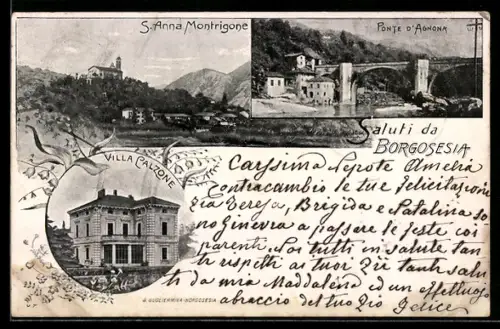 S. Anna Montrigone
Ponte d'Agnona
Saluti da
Borgosesia
Villa Calzone
Carissima Nepote Amelia
Contracambio le tue felicitazione
Zia Teresa, Brigida e Natalina so
no Ginevra a passare le feste coi
parenti. Noi tutti in salute tan
ti rispetti ai tuoi Zii tanti salu
ti da mia Maddalena ed un effettuoso
abraccio del tuo Zio Felice
Borgosesia